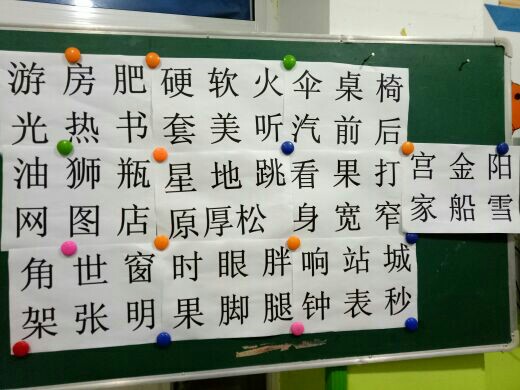 游房肥硬软火伞桌椅
光热书套美听汽前后
油狮瓶星地跳看果打宫金阳
网图店原厚松身宽窄家船雪
角世窗时眼胖响站城
架张明果脚腿钟表秒